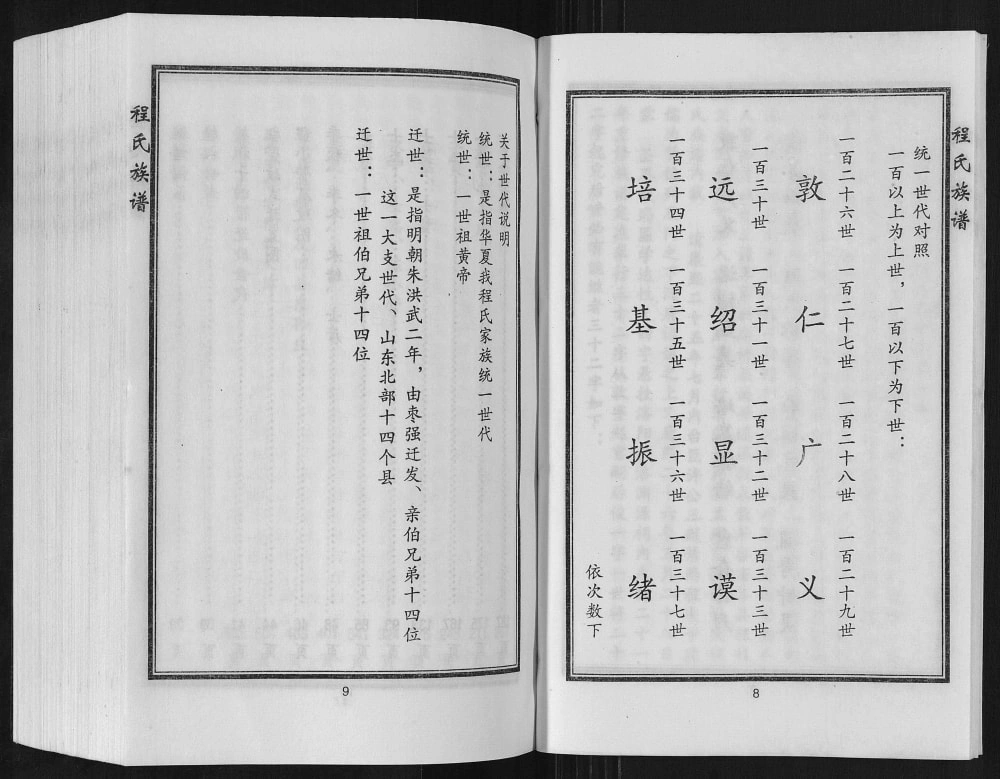 程氏族谱
统一世代对照
一百以上为上世，一百以下为下世：
一百二十六世 一百二十七世 一百二十八世 一百二十九世
敦 仁 广 义
一百三十世 一百三十一世 一百三十二世 一百三十三世
远 绍 显 谟
一百三十四世 一百三十五世 一百三十六世 一百三十七世
培 基 振 绪
依次数下
8
关于世代说明
统世：是指华夏我程氏家族统一世代
统世：一世祖黄帝
迁世：是指明朝朱洪武二年，由枣强迁发、亲伯兄弟十四位
这一大支世代、山东北部十四个县
迁世：一世祖伯兄弟十四位
程氏族谱
9